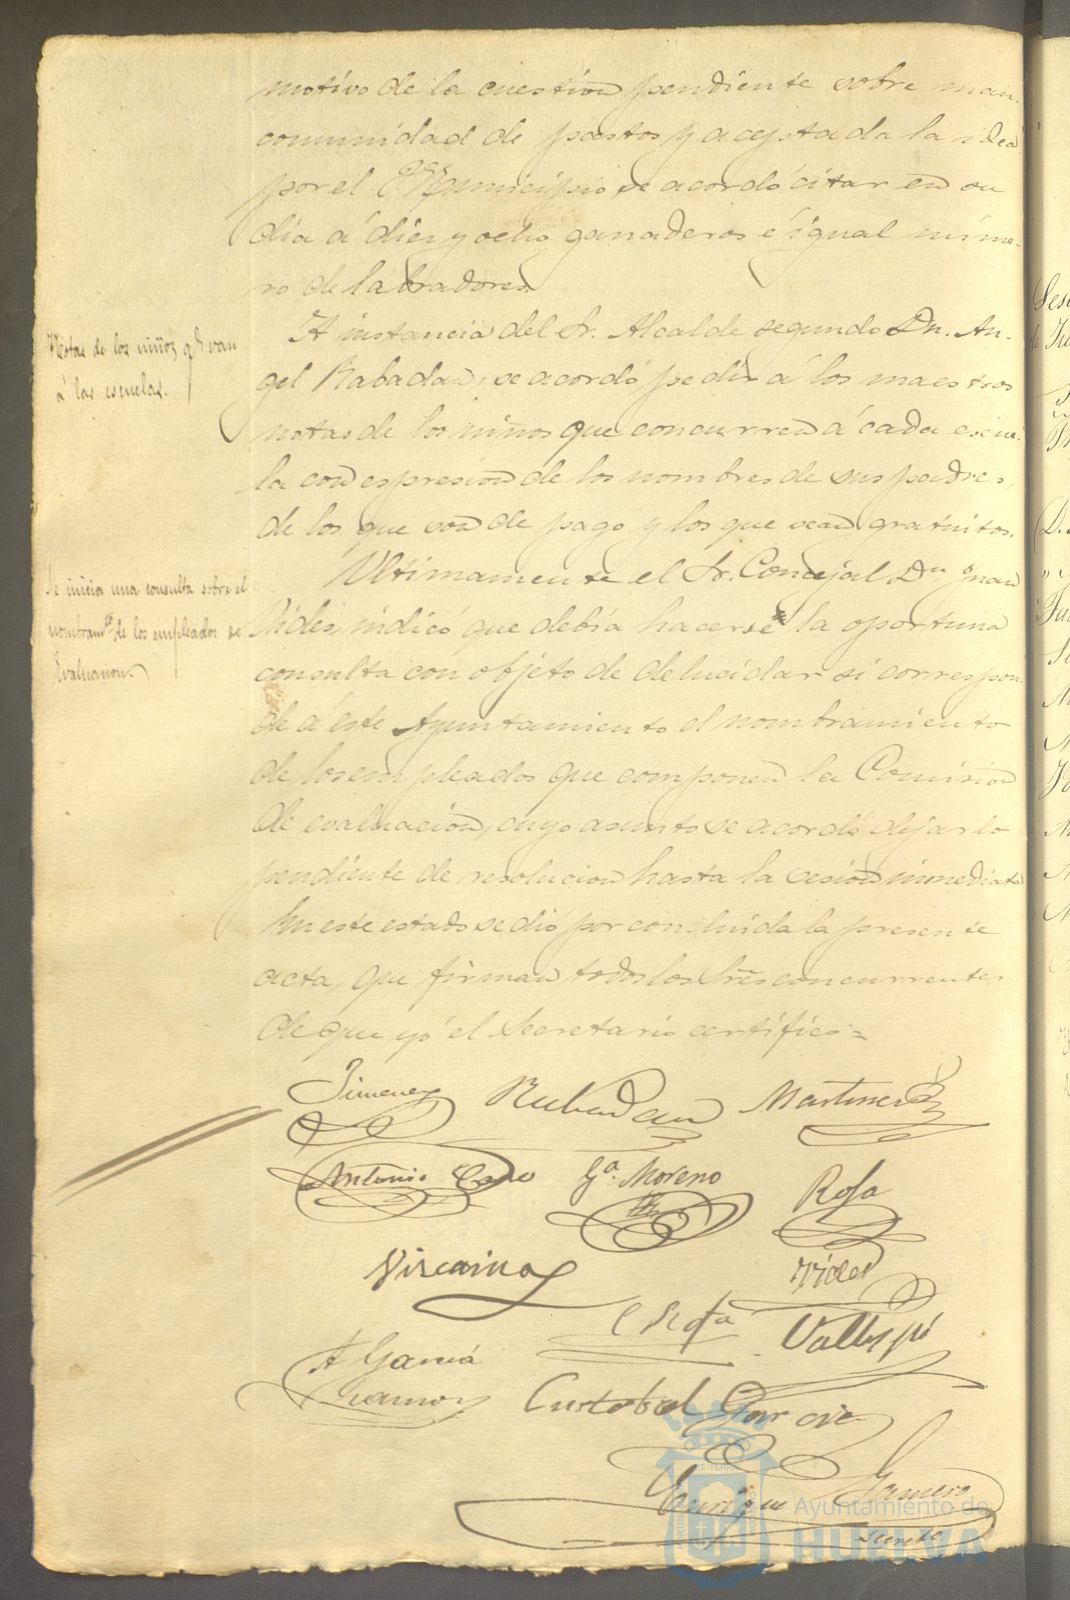 motivo de la cuestion pendiente sobre man-
comunidad de pastos y aceptada la idea
por el Municipio, se acordó citar en su
dia á diez y ocho ganaderos é ígual núme-
ro de labradores.
Notas de los niños qe van
á las escuelas.
A instancia del Sr. Alcalde segundo Dn. An-
gel Rabadan, se acordó pedir á los maestros
notas de los niños que concurren á cada escue-
la con espresion de los nombres de sus padres,
de los que son de pago y los que sean gratuitos.
Se inicia una consulta sobre el
nombramto de los empleados de
Evaluacion
Ultimamente el Sr. Concejal Dn Juan
Vides, indicó que debía hacerse la oportuna
consulta con objeto de delucidar si correspon-
de á éste Ayuntamiento el nombramiento
de los empleados que componen la Comision
de evaluación, cuyo asunto se acordó dejarlo
pendiente de resolucion hasta la sesion inmediata
En este estado se dió por concluida la presente
acta, que firman todos los Sres concurrentes
de que yo el Secretario certifico =
Jimenez Rabadan Martinez
Antonio Cano Ga. Moreno Rosa
Vizcaino Vides
Vallespi
A Garcia
Ramos Cristobal Garcia
Enrique Gamero
Ayuntamiento de
HUELVA